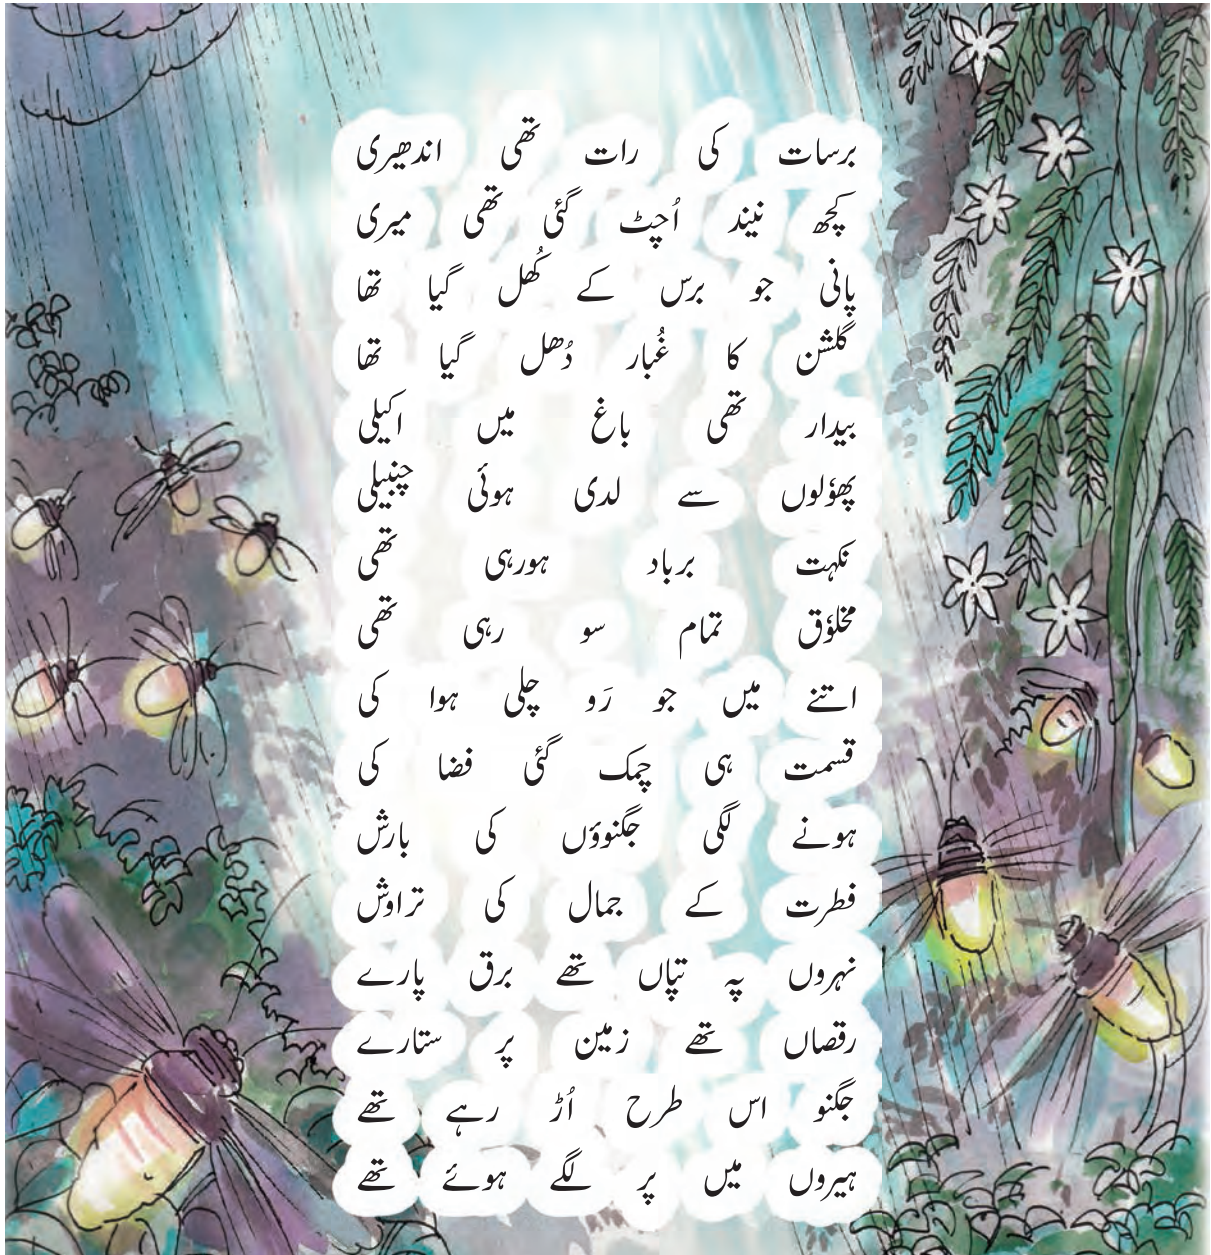 برسات کی رات تھی اندھیری
کچھ نیند اُچٹ گئی تھی میری
پانی جو برس کے کُھل گیا تھا
گلشن کا غُبار دُھل گیا تھا
بیدار تھی باغ میں اکیلی
پھوٗلوں سے لدی ہوئی چنبیلی
نکہت برباد ہورہی تھی
مخلوٗق تمام سو رہی تھی
اتنے میں جو رَو چلی ہوا کی
قسمت ہی چمک گئی فضا کی
ہونے لگی جگنوؤں کی بارش
فطرت کے جمال کی تراوش
نہروں پہ تپاں تھے برق پارے
رقصاں تھے زمین پر ستارے
جگنو اس طرح اُڑ رہے تھے
ہیروں میں پر لگے ہوئے تھے